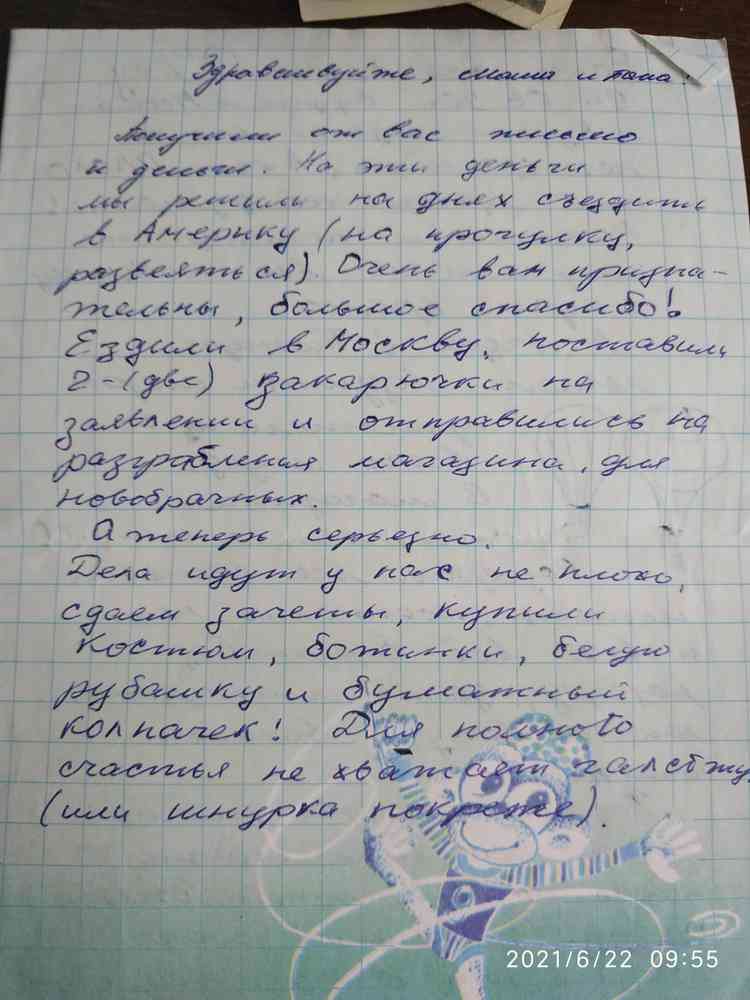 Здравствуйте, мама и папа!
Получили от вас письмо
и деньги. На эти деньги
мы решили на днях съездить
в Америку (на прогулку,
развеяться). Очень вам призна-
тельны, большое спасибо!
Ездили в Москву, поставили
2-(две) закарючки на
заявлении и отправились на
разграбления магазина для
новобрачных.
А теперь серьезно.
Дела идут у нас не плохо,
сдаем зачеты, купили
костюм, ботинки, белую
рубашку и бумажный
колпачек! Для полного
счастья не хватает галстука
(или шнурка покрепче).
2021/6/22 09:55